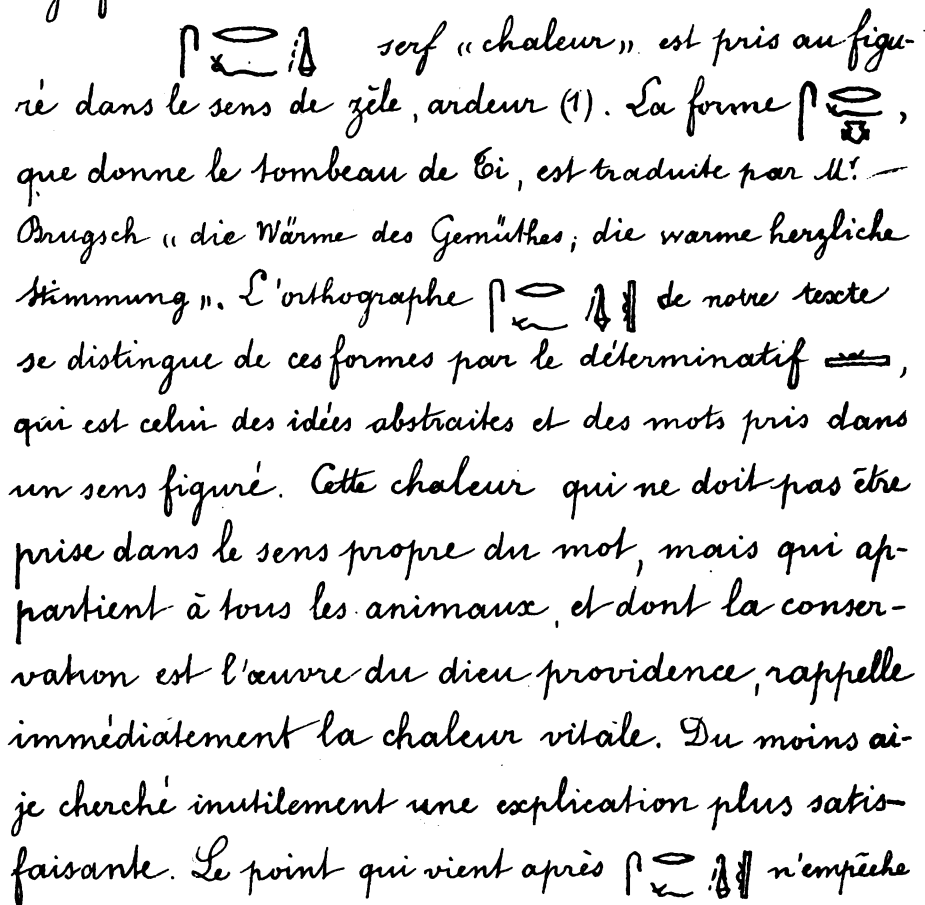 𓋴𓂋𓆑𓊮 serf „chaleur„ est pris au figu-
ré dans le sens de zèle, ardeur (1). La forme 𓋴𓂋𓆑,
que donne le tombeau de Ti, est traduite par Mr. —
Brugsch „die Wärme des Gemüthes; die warme herzliche
Stimmung„. L'orthographe 𓋴𓂋𓆑𓊮𓏛 de notre texte
se distingue de ces formes par le déterminatif 𓏛,
qui est celui des idées abstraites et des mots pris dans
un sens figuré. Cette chaleur qui ne doit pas être
prise dans le sens propre du mot, mais qui ap-
partient à tous les animaux, et dont la conser-
vation est l'œuvre du dieu providence, rappelle
immédiatement la chaleur vitale. Du moins ai-
je cherché inutilement une explication plus satis-
faisante. Le point qui vient après 𓋴𓂋𓆑𓊮𓏛 n'empêche